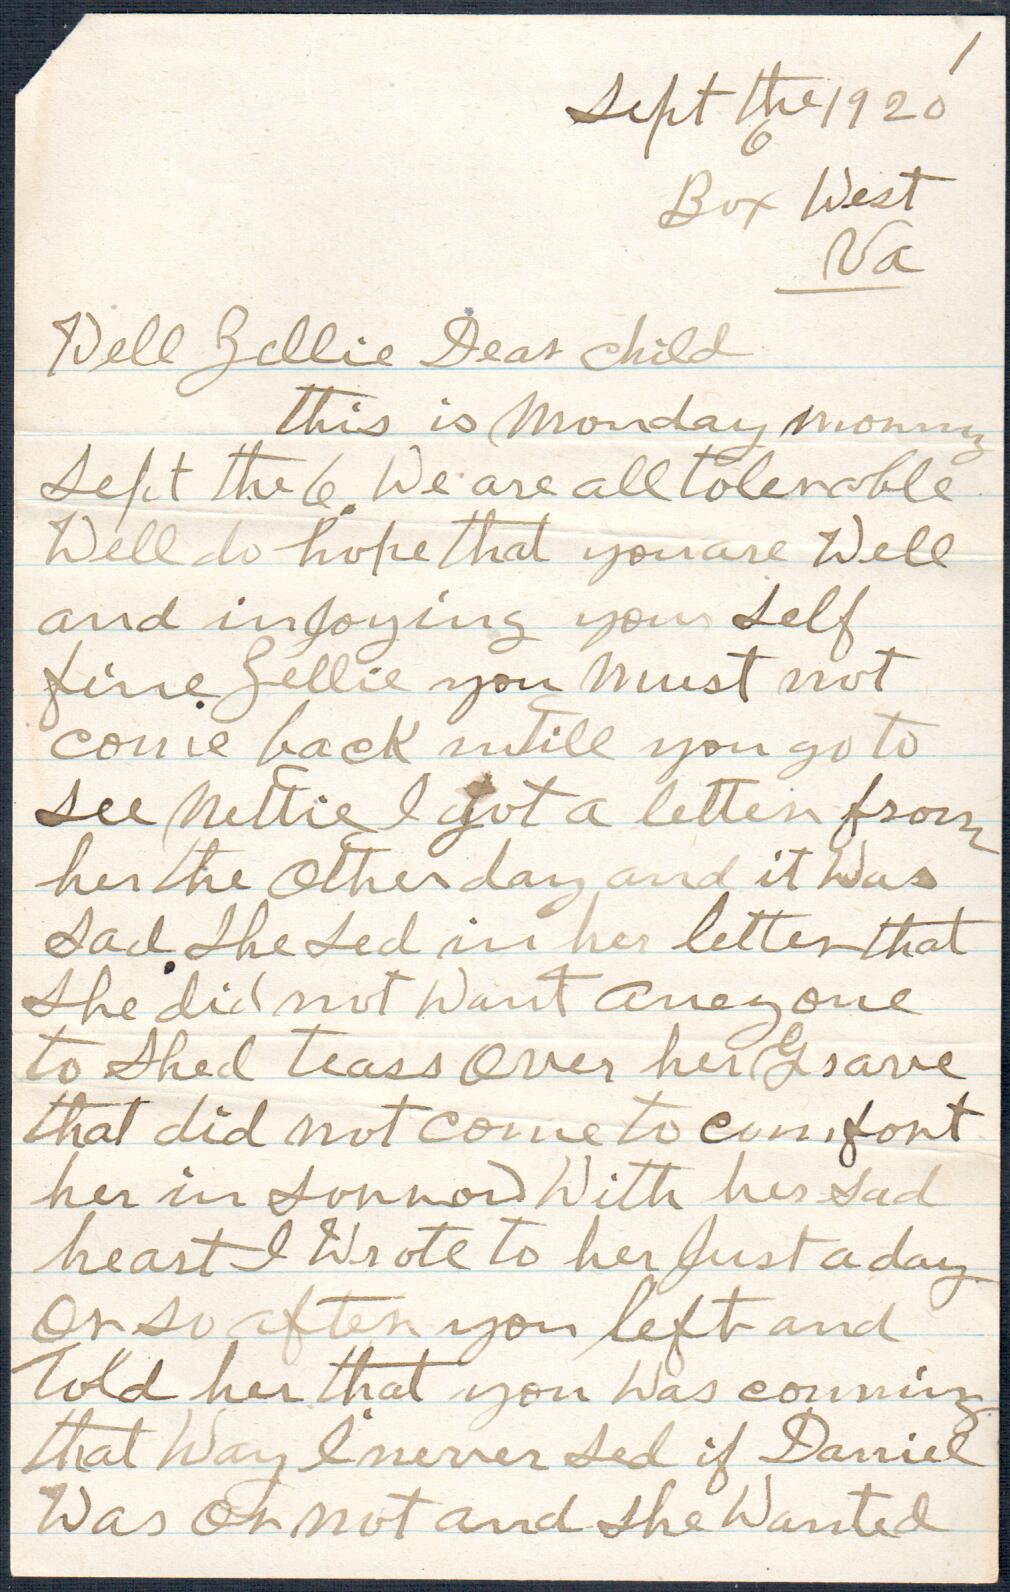 1
Sept the 1920
6
Box West
Va
Well Zellie Dear child
this is Monday morning
Sept the 6. We are all tolerable
Well do hope that you are Well
and injoying your self
fine. Zellie you must not
come back untill you go to
see Nettie I got a letter from
her the other day and it was
sad. She sed in her letter that
she did not want aneyone
to shed teass over her Grave
that did not come to comfort
her in sorrow With her sad
heart I Wrote to her Just a day
or so after you left and
Told her that you was comming
that Way I never sed if Daniel
Was or not and she Wanted